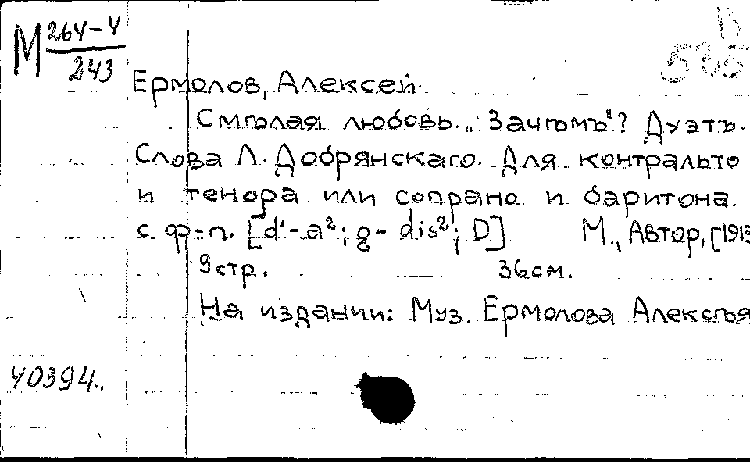 М 264-4
243
Ермолов, Алексей
Смѣлая любовь. „Зачѣмъ"? Дуэтъ.
Слова Л. Добрянскаго. Для контральто
и тенора или сопрано и баритона
с ф-п. [d¹-a²; g-dis²; D] М., Автор, [1913
9 стр. 36 см.
На издании: Муз. Ермолова Алексѣя
40394.